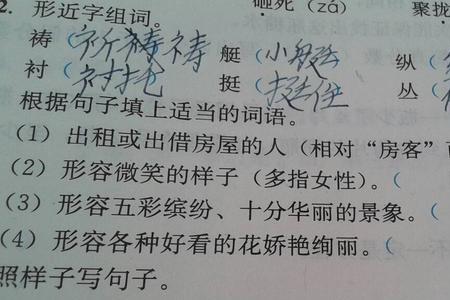 2. 形近字组词。 砸死（zá） 聚拢
祷（祈祷祷 艇（小艇 纵（
衬（衬托 挺（挺住 丛（
根据句子填上适当的词语。
（1）出租或出借房屋的人（相对“房客”
（2）形容微笑的样子（多指女性）。（
（3）形容五彩缤纷、十分华丽的景象。（
（4）形容各种好看的花娇艳绚丽。（
照样子写句子。